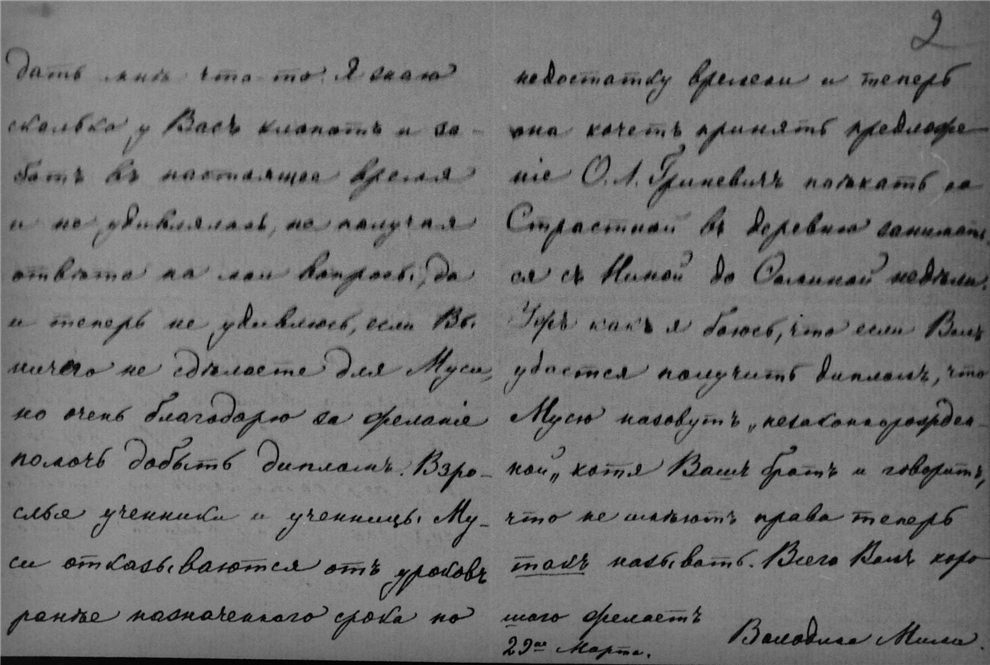 2
дать мнѣ что то. Я знаю
сколько у Васъ хлопотъ и за-
ботъ въ настоящее время
и не удивлялась, не получая
отвѣта на мои вопросы, да
и теперь не удивлюсь, если Вы
ничего не сдѣлаете для Муси,
но очень благодарю за желаніе
помочь добыть дипломъ. Взро-
слые ученики и ученицы Му-
си отказываются отъ уроковъ
ранѣе назначеннаго срока по
недостатку времени и теперь
она хочетъ принять предложе-
ніе О. Л. Гриневичъ поѣхать на
Страстной въ деревню занимать-
ся съ Ниной до Ѳоминой недѣли.
Ужъ какъ я боюсь, что если Вамъ
удастся получить дипломъ, что
Мусю назовутъ „незаконнорожден-
ной„ хотя Вашъ братъ и говоритъ,
что не имѣютъ права теперь
такъ называть. Всего Вамъ хоро
шаго желаетъ
29го Марта.